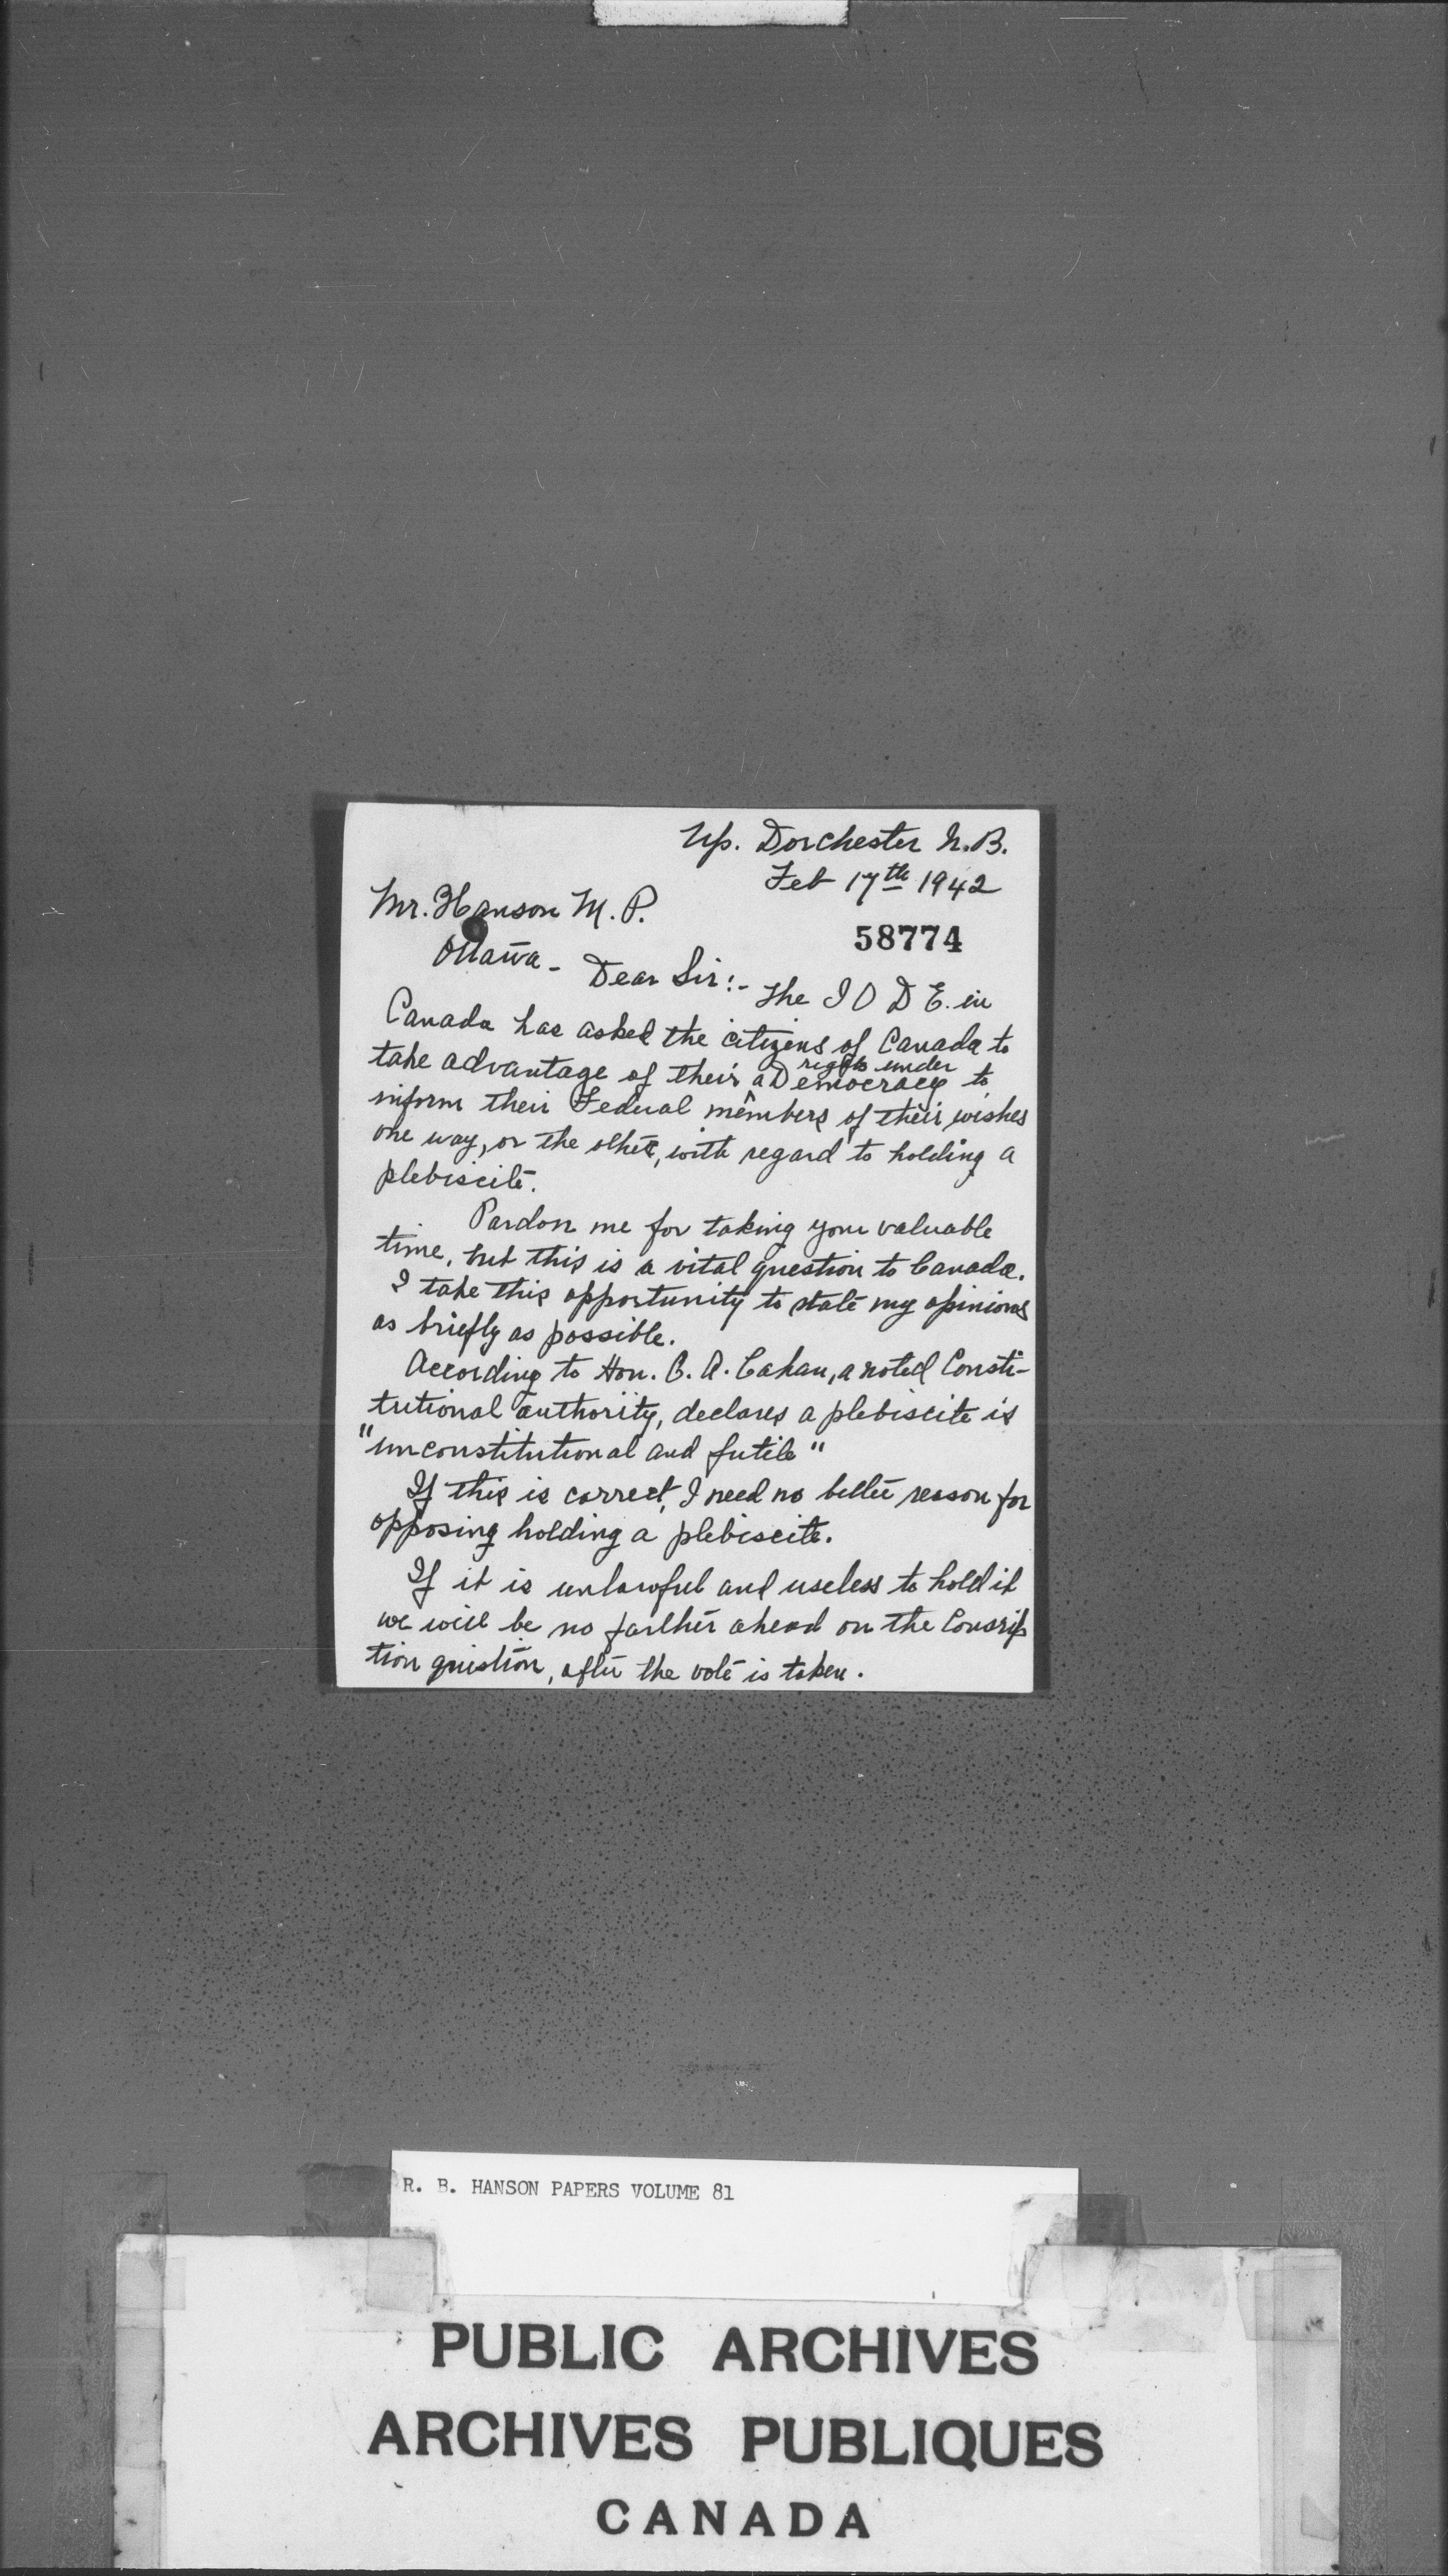 Up. Dorchester N.B.
Feb 17th 1942
Mr. Hanson M.P.
58774
Ottawa - Dear Sir:- The I O D E. in
Canada has asked the citizens of Canada to
take advantage of their rights under a Democracy to
inform their Federal members of their wishes
one way, or the other, with regard to holding a
plebiscite.
Pardon me for taking your valuable
time, but this is a vital question to Canada.
I take this opportunity to state my opinions
as briefly as possible.
According to Hon. C. A. Cahan, a noted Consti-
tutional authority, declares a plebiscite is
"unconstitutional and futile"
If this is correct, I need no better reason for
opposing holding a plebiscite.
If it is unlawful and useless to hold it
we will be no farther ahead on the Conscrip
tion question, after the vote is taken.
R. B. HANSON PAPERS VOLUME 81
PUBLIC ARCHIVES
ARCHIVES PUBLIQUES
CANADA